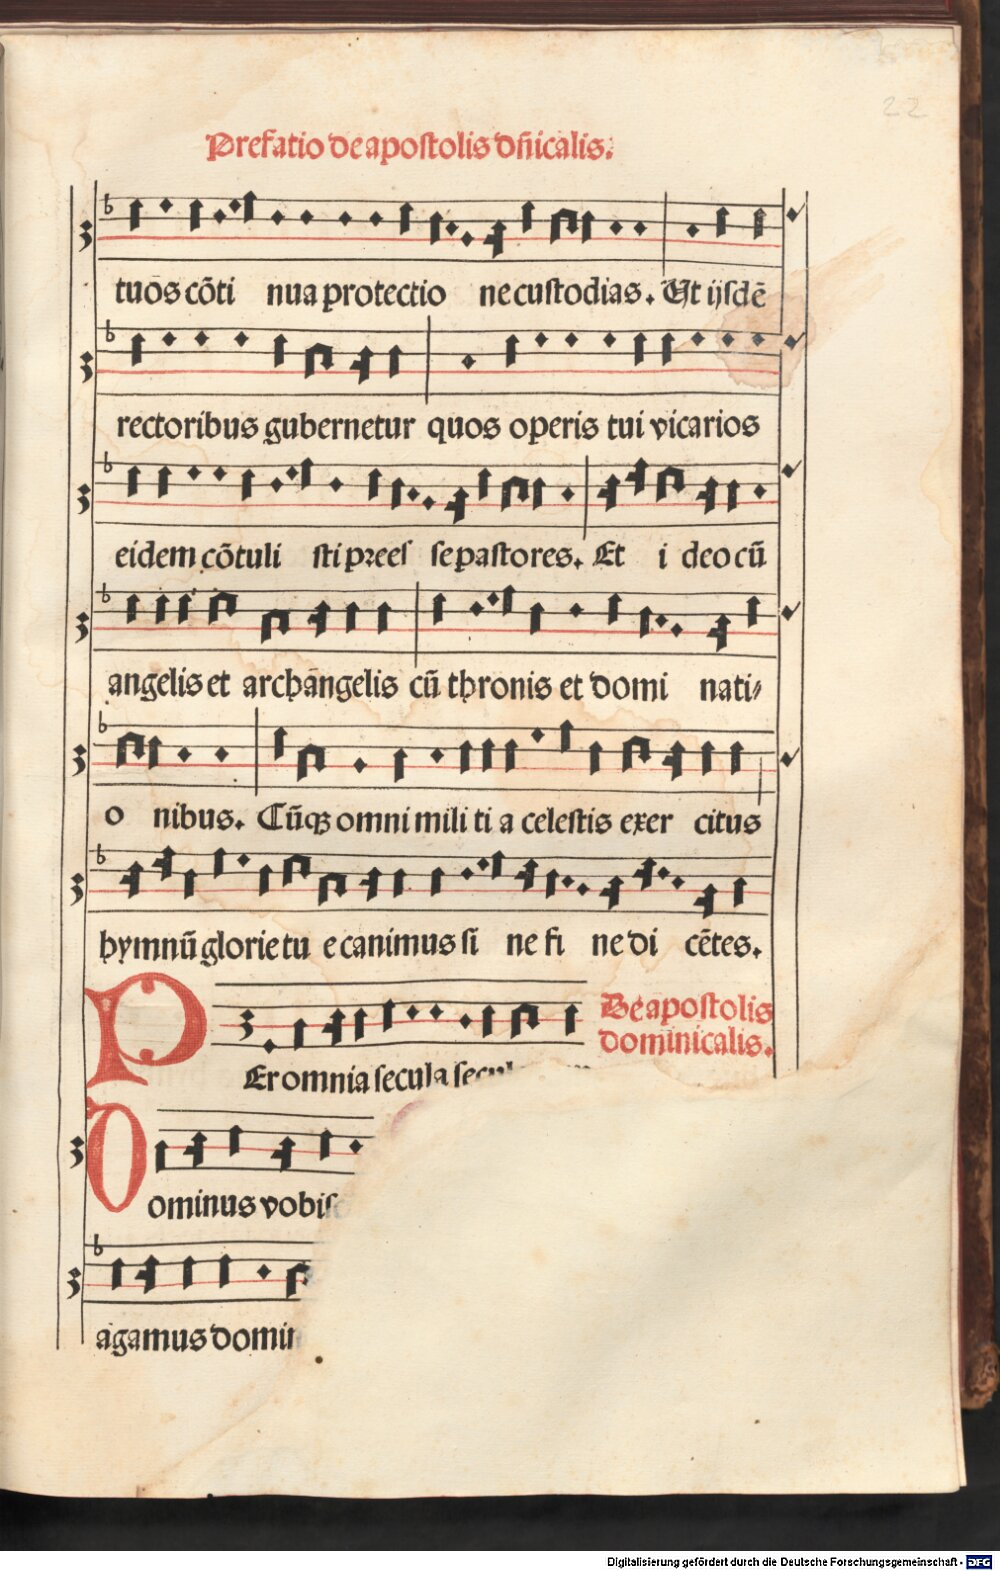 22
Prefatio de apostolis dñicalis.
tuos cōti nua protectio ne custodias. Ut ijsdē
rectoribus gubernetur quos operis tui vicarios
eidem cōtuli sti preeſ se pastores. Et i deo cū
angelis et archangelis cū thronis et domi nati⸗
o nibus. Cūqꝫ omni mili ti a celestis exer citus
hymnū glorie tu e canimus si ne fi ne di cētes.
De apostolis
dominicalis.
Per omnia secula
Dominus
agamus
Digitalisierung gefördert durch die Deutsche Forschungsgemeinschaft - DFG